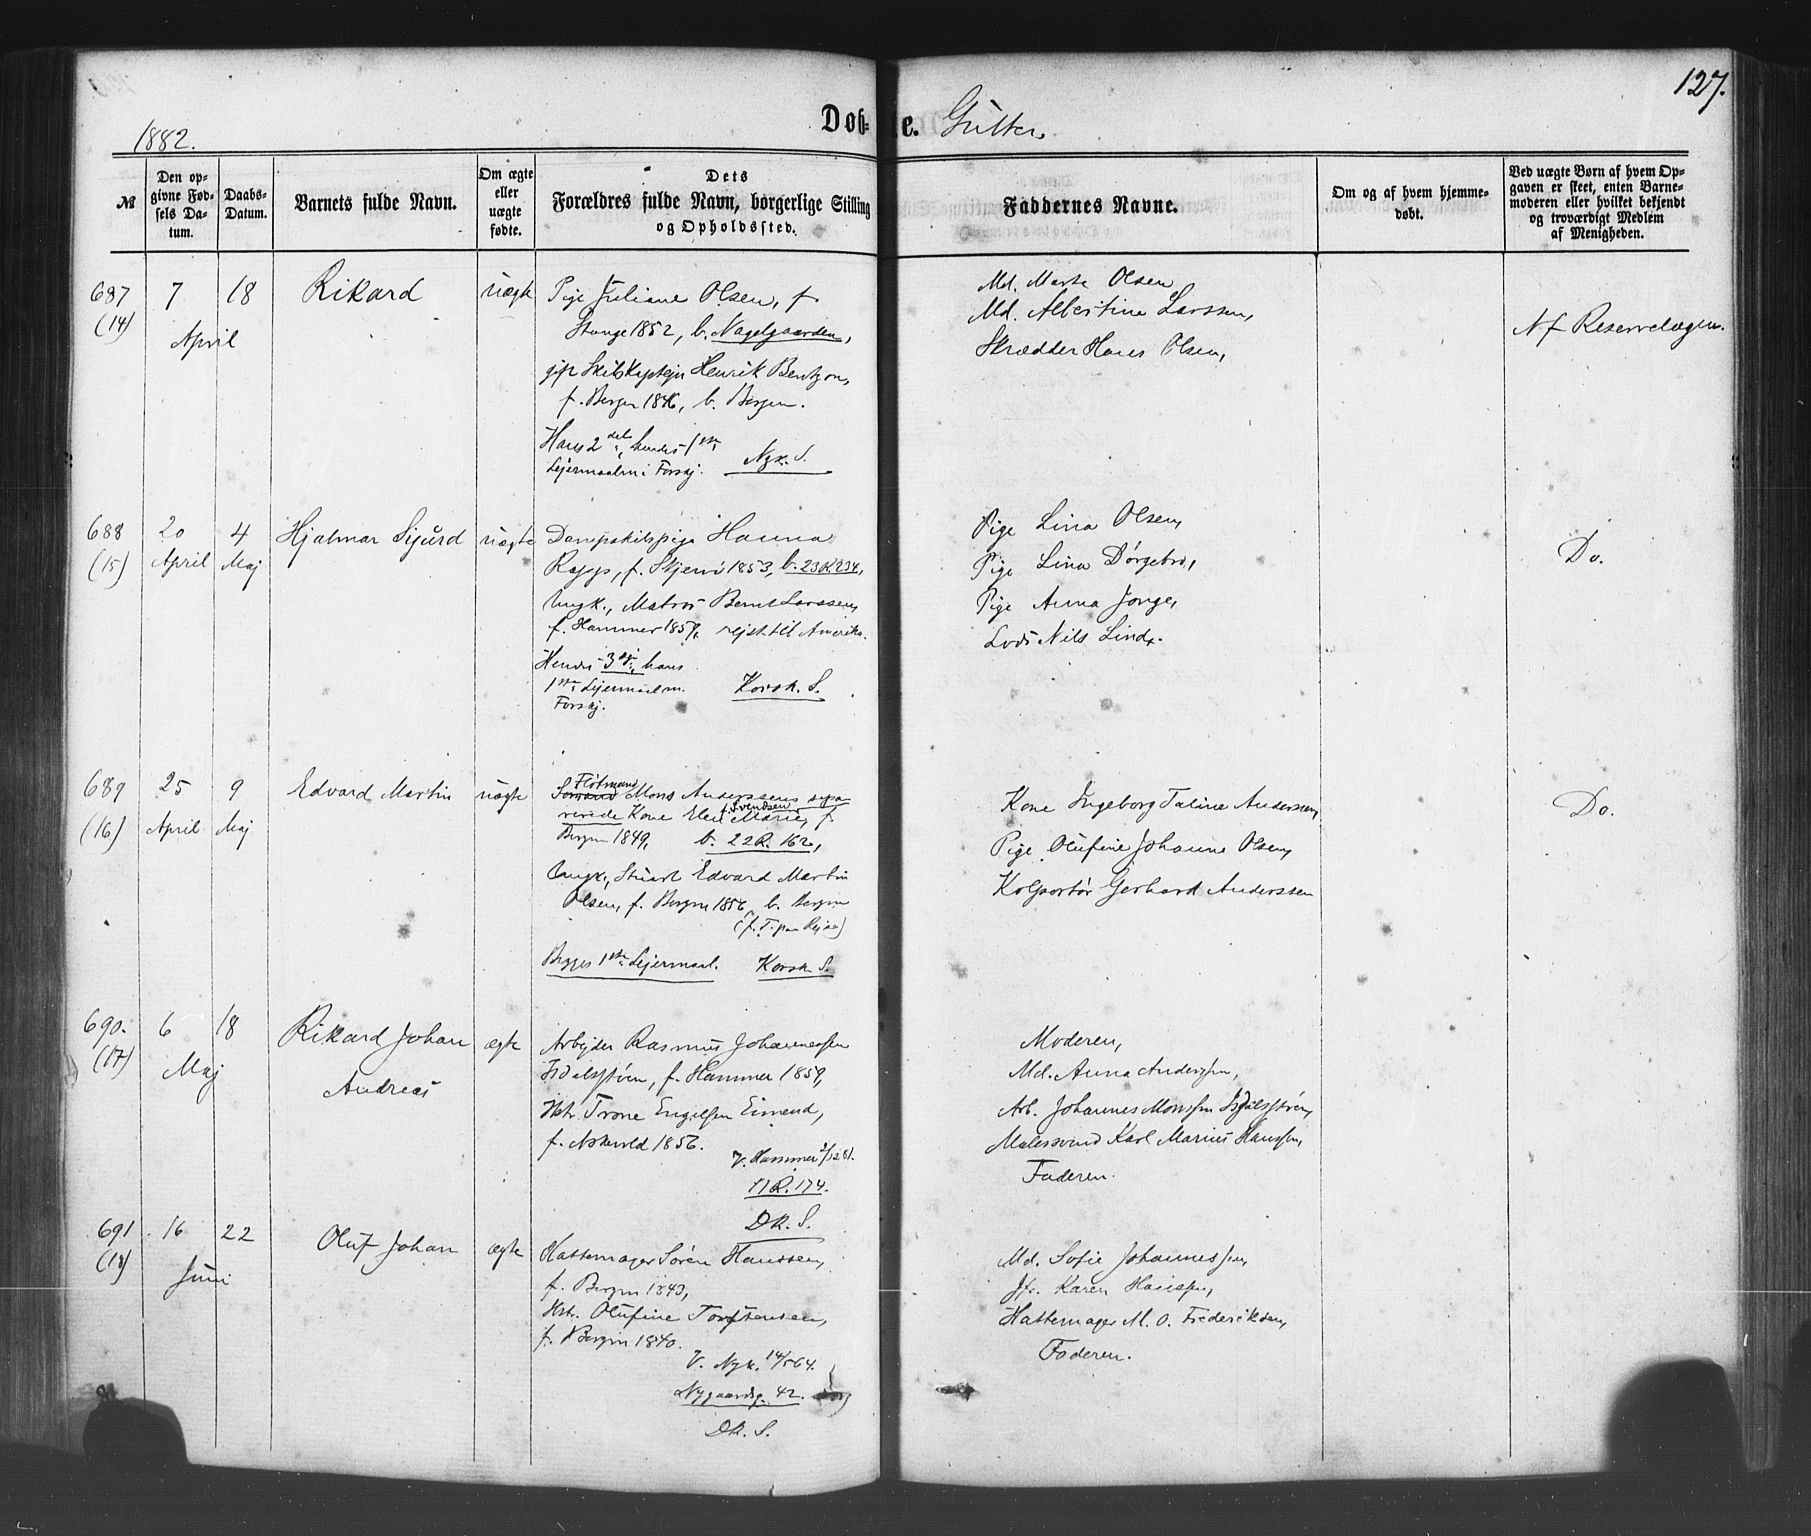 127.
1882.
Døb-te. Gutter.
№
Den op-
givne Fød-
sels Da-
tum.
Daabs-
Datum.
Barnets fulde Navn.
Om ægte
eller
uægte
fødte.
Dets
Forældres fulde Navn, borgerlige Stilling
og Opholdssted.
Faddernes Navne.
Om og af hvem hjemme-
døbt.
Ved uægte Børn af hvem Op-
gaven er skeet, enten Barne-
moderen eller hvilket bekjendt
og troværdigt Medlem
af Menigheden.
687
(14)
7 18
April
Rikard
uægte
Pige Juliane Olsen, f.
Stange 1852, b. Nagelgaarden,
gift Skibskaptejn Henrik Bentzon,
f. Bergen 1846, b. Bergen.
Hans 2 det, hendes 1ste
Lejermaal i Forskj. Nyk. S.
Md. Marte Olsen,
Md. Albertine Larssen,
Skrædder Hans Olsen,
N f Reservelægen.
688
(15)
20
April
4
Maj
Hjalmar Sigurd
uægte
Dampskibspige Hanna
f. 1853, b. 23R.234,
Ungk., Matros Bernt Larssen,
f. Hammer 1857, rejst til Amerika.
Hendes 3 dje, hans
1ste Lejermaal m.
Forskj. Korsk. S.
Pige Lina Olsen,
Pige Lina
Pige Anna
Lods Nils Lind.
Do.
689
(16)
25
April
9
Maj
Edvard Martin
uægte
Fløtmand
Mons Anderssens sepa-
f. Svendsen
rerede Kone Elen Marie, f.
Bergen 1849, b. 22R.162,
Ungk., Stuart Edvard Martin
Olsen, f. Bergen 1856, b. Bergen
(f. T. paa Rejse)
Begges 1ste Lejermaal. Korsk. S.
Kone Ingeborg Taline Anderssen,
Pige Olufine Johanne Olsen,
Kolportør Gerhard Anderssen
Do.
690.
(17)
6 18
Maj
Rikard Johan
Andreas
ægte
Arbejder Rasmus Johannessen
f. Hammer 1859,
Hstr. Trone Engelsen Eimend,
f. Askvold 1856.
V. Hammer 81.
11R.174.
DK. S.
Moderen,
Md. Anna Anderssen,
Arb. Johannes Monssen
Malersvend Karl Marius Hanssen,
Faderen.
691
(18)
16 22
Juni
Oluf Johan
ægte
Hattemager Søren Hanssen,
f. Bergen 1843,
Hstr. Olufine Torstensen,
f. Bergen 1840.
V. Nyk. 14/5 64.
Nygaardsg. 42.
DK. S.
Md. Sofie Johannessen,
Jfr. Karen Hanssen,
Hattemager M. O. Frederiksen,
Faderen.